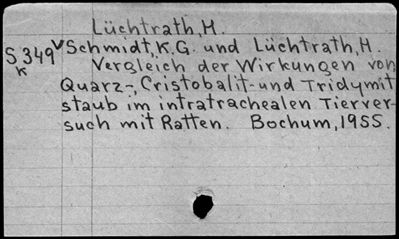 Lüchtrath, H.
S 349 v Schmidt, K.G. und Lüchtrath, H.
K Vergleich der Wirkungen von
Quarz-, Cristobalit- und Tridymit
staub im intratrachealen Tierver-
such mit Ratten. Bochum, 1955.